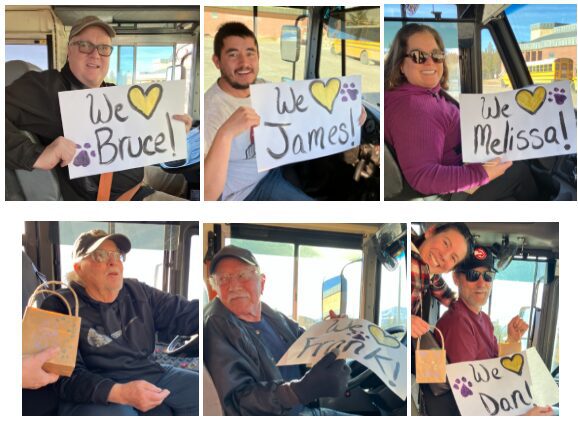 We 💛
Bruce!
We 💛
James!
We 💛
Melissa!
We 💛
Frank!
We 💛
Dan!